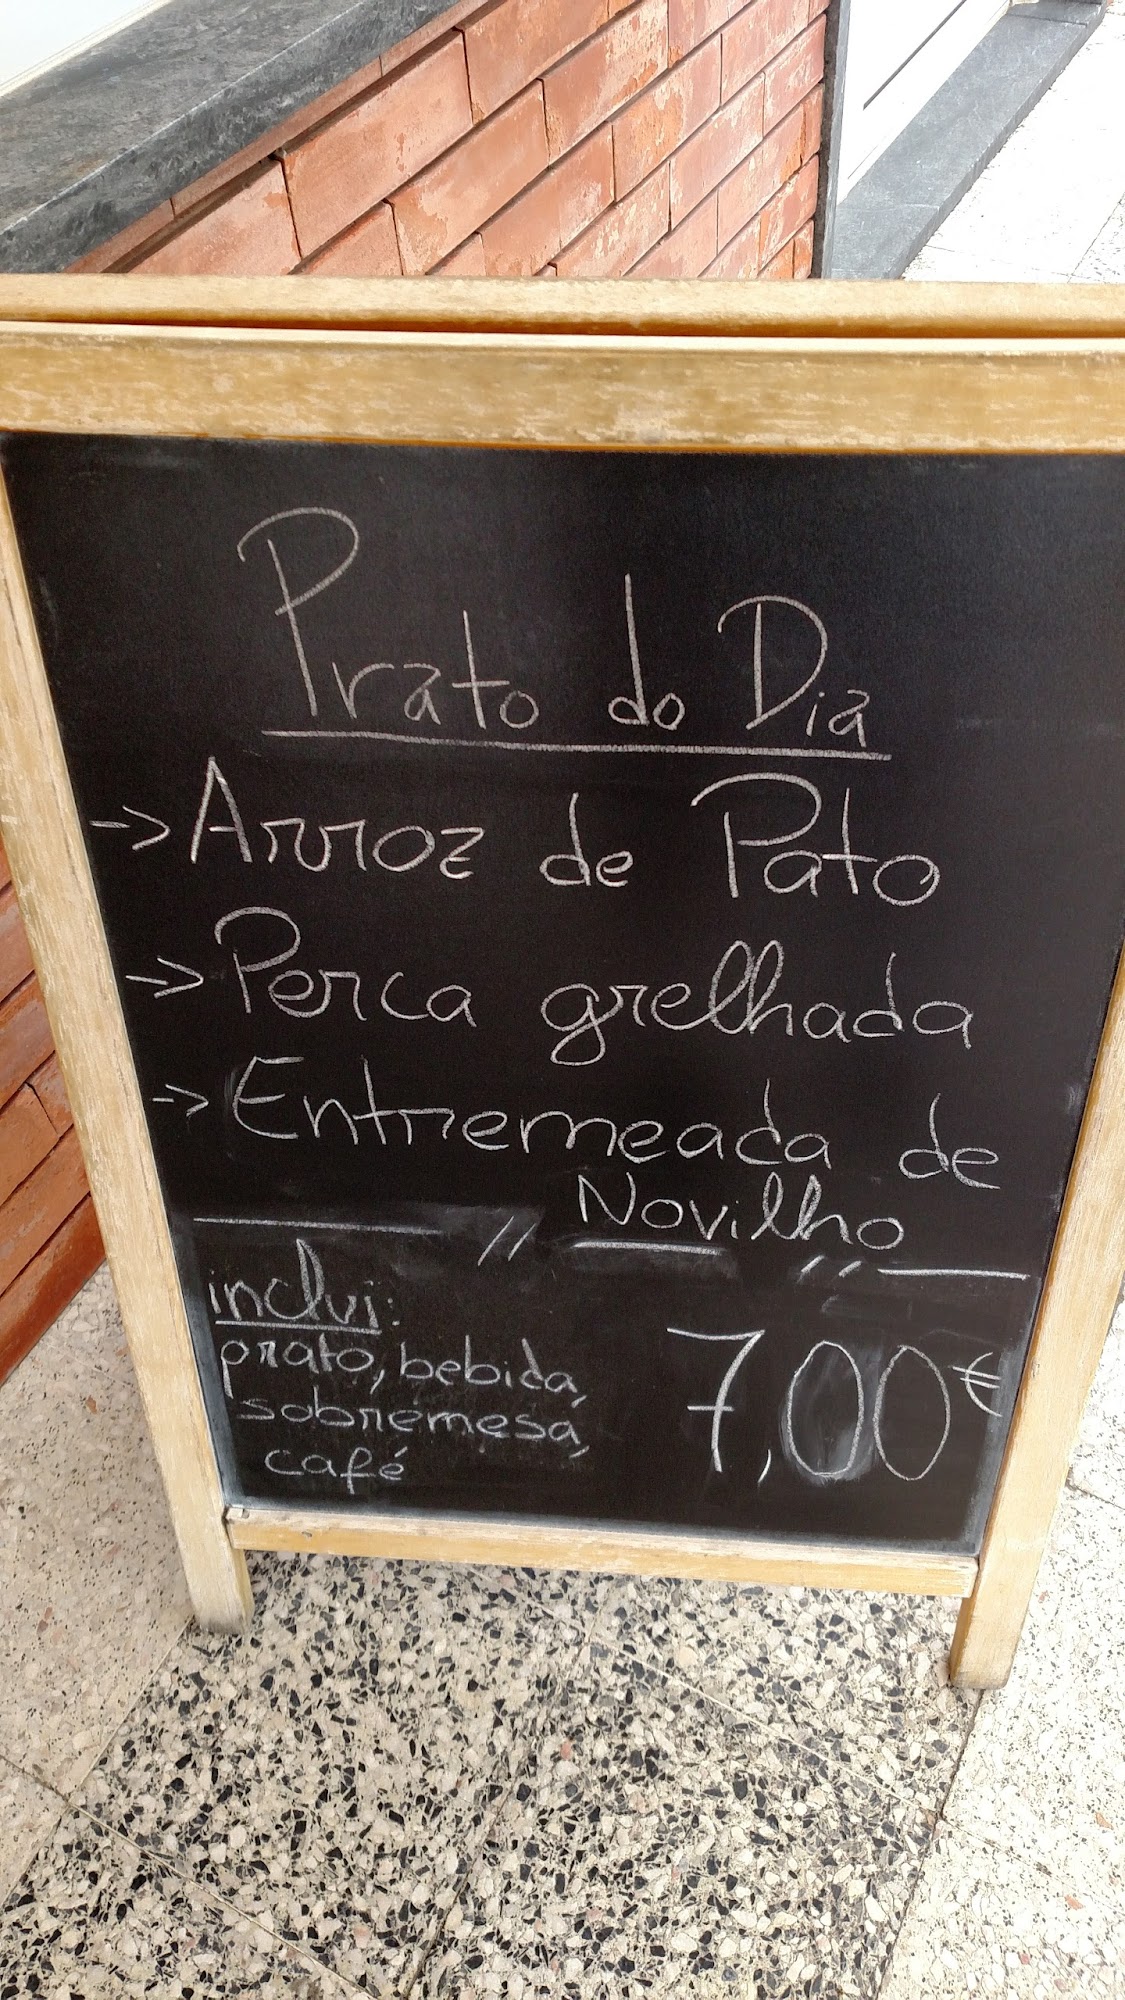 Prato do Dia
-> Arroz de Pato
-> Perca grelhada
-> Entremeada de
Novilho
inclui:
prato, bebida,
sobremesa,
café
7,00€